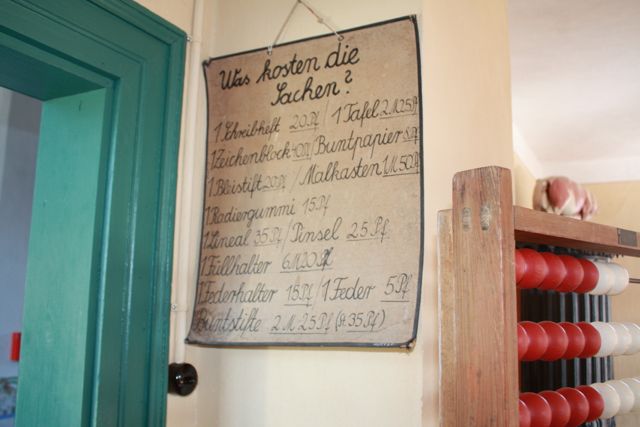 Was kosten die
Sachen?
1 Schreibheft 20Pf / 1 Tafel 2M25Pf
1 Zeichenblock 40Pf / Buntpapier
1 Bleistift 20Pf / Malkasten 1M50Pf
1 Radiergummi 15Pf
1 Lineal 35Pf / Pinsel 25Pf
1 Füllhalter 6M20Pf
1 Federhalter 18Pf / 1 Feder 5Pf
Buntstifte 2M25Pf (St. 35Pf)